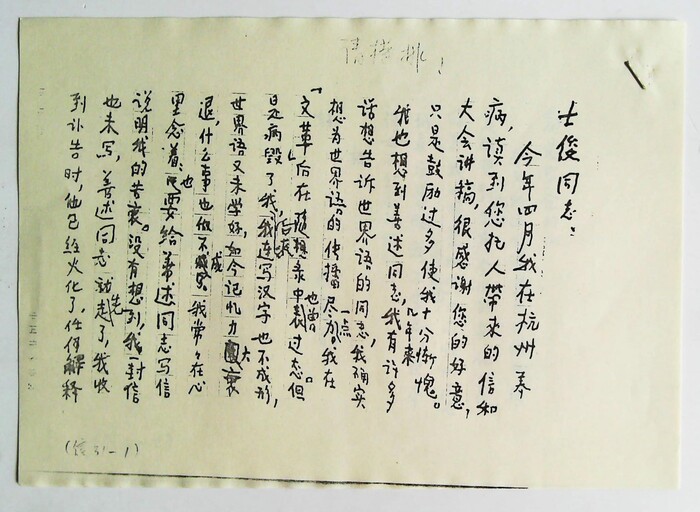 请横排!
士俊同志:
今年四月我在杭州养
病,读到您托人带来的信和
大会讲稿,很感谢您的好意,
只是鼓励过多使我十分惭愧。
我也想到善述同志,几年来我有许多
话想告诉世界语的同志,我确实
想为世界语的传播尽一点力。我在
「文革」后在随想录中也曾表过态。但
是病毁了我,后来我连写汉字也不成形,
世界语又未学好,如今记忆力大衰
退,什么事也做不成。我常常在心
里念着,也要给善述同志写信
说明我的苦衷。没有想到,我一封信
也未写,善述同志就先走了,我收
到讣告时,他已经火化了,任何解释
(信31-1)